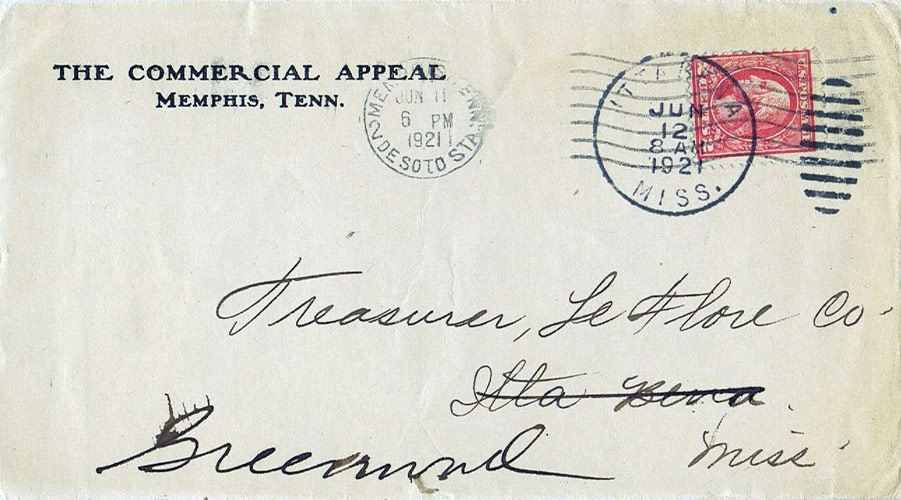 THE COMMERCIAL APPEAL
MEMPHIS, TENN.
JUN 11
6 PM
1921
DE SOTO STA.
JUN
12
8 AM
1921
MISS.
Treasurer, Le Flore Co.
Itta Bena
Greenwood Miss.